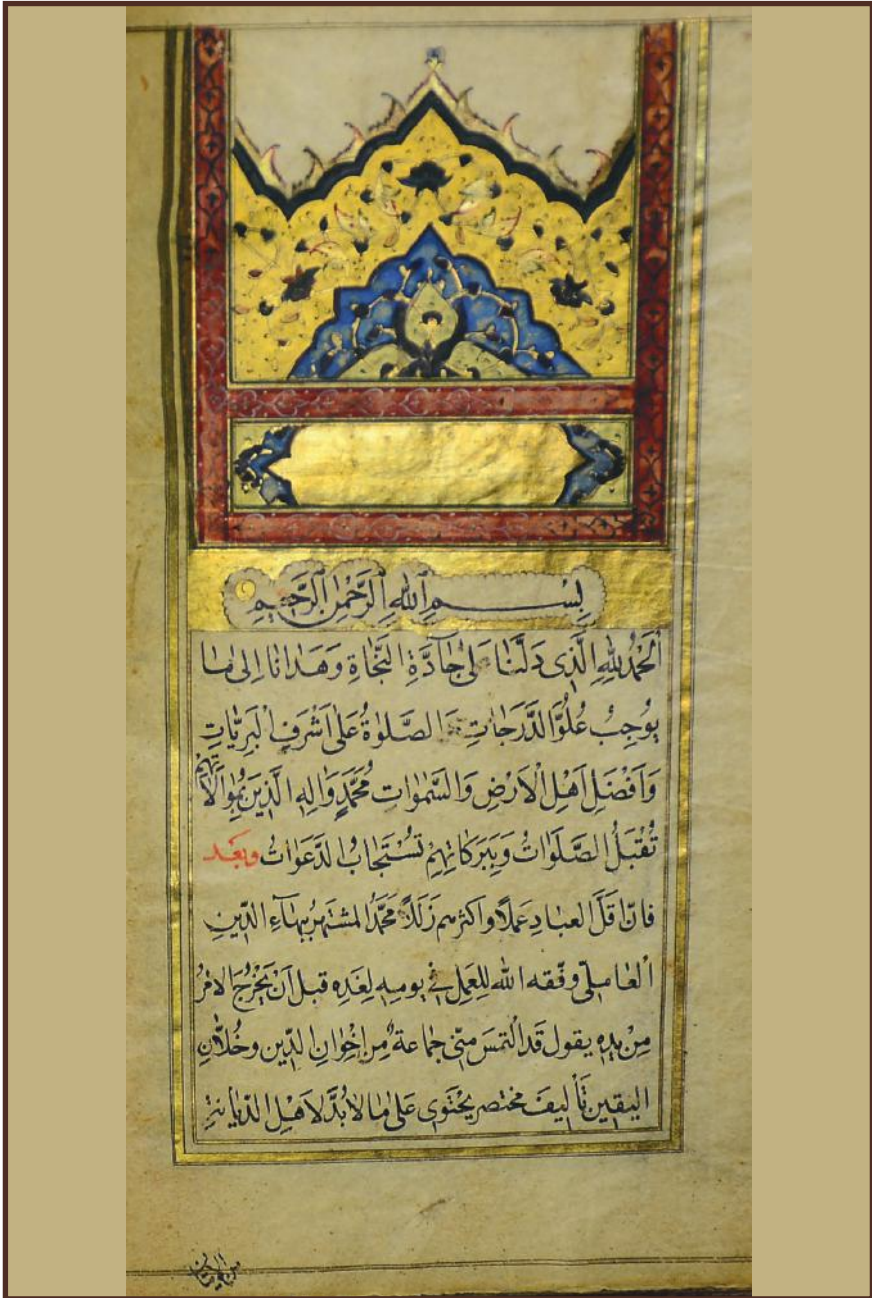 بِسْمِ ٱللهِ ٱلرَّحْمٰنِ ٱلرَّحِيمِ
اَلْحَمْدُ لِلّٰهِ الَّذِى دَلَّنَا عَلىٰ جَآدَّةِ النَّجَاةِ وَهَدانَا اِلىٰ مٰا
يُوجِبُ عُلُوَّ الدَّرَجٰاتِ وَالصَّلوٰةُ عَلىٰ اَشْرَفِ الْبَرِيّٰاتِ
وَاَفْضَلِ اَهْلِ الْاَرْضِ وَالسَّمٰوٰاتِ مُحَمَّدٍ وَاٰلِهِ الَّذِينَ بِمُوٰالٰاتِهِمْ
تُقْبَلُ الصَّلَوٰاتُ وَبِبَرَكٰاتِهِمْ تُسْتَجٰابُ الدَّعَوٰاتُ وبَعَد
فانّ اَقَلَّ العبادِ عَمَلًا واكثرهم زَلَلًا مُحَمَّدُ المشتهرُ ببهٰآءِ الدّينِ
الْعٰاملِىّ وفّقه الله لِلعَمَلِ فِي يومِهِ لِغَدِهِ قبلَ اَنْ يَخْرُجَ الامْرُ
مِنْ يدِهِ يقول قَدِ الْتَمَسَ مِنّى جمٰاعةٌ مِنْ اِخْوٰانِ الدّين وخُلّانِ
اليقين تَأليفَ مختصرٍ يَحْتَوِى عَلىٰ مٰا لاٰبُدَّ لاَهْلِ الدّيٰانةِ